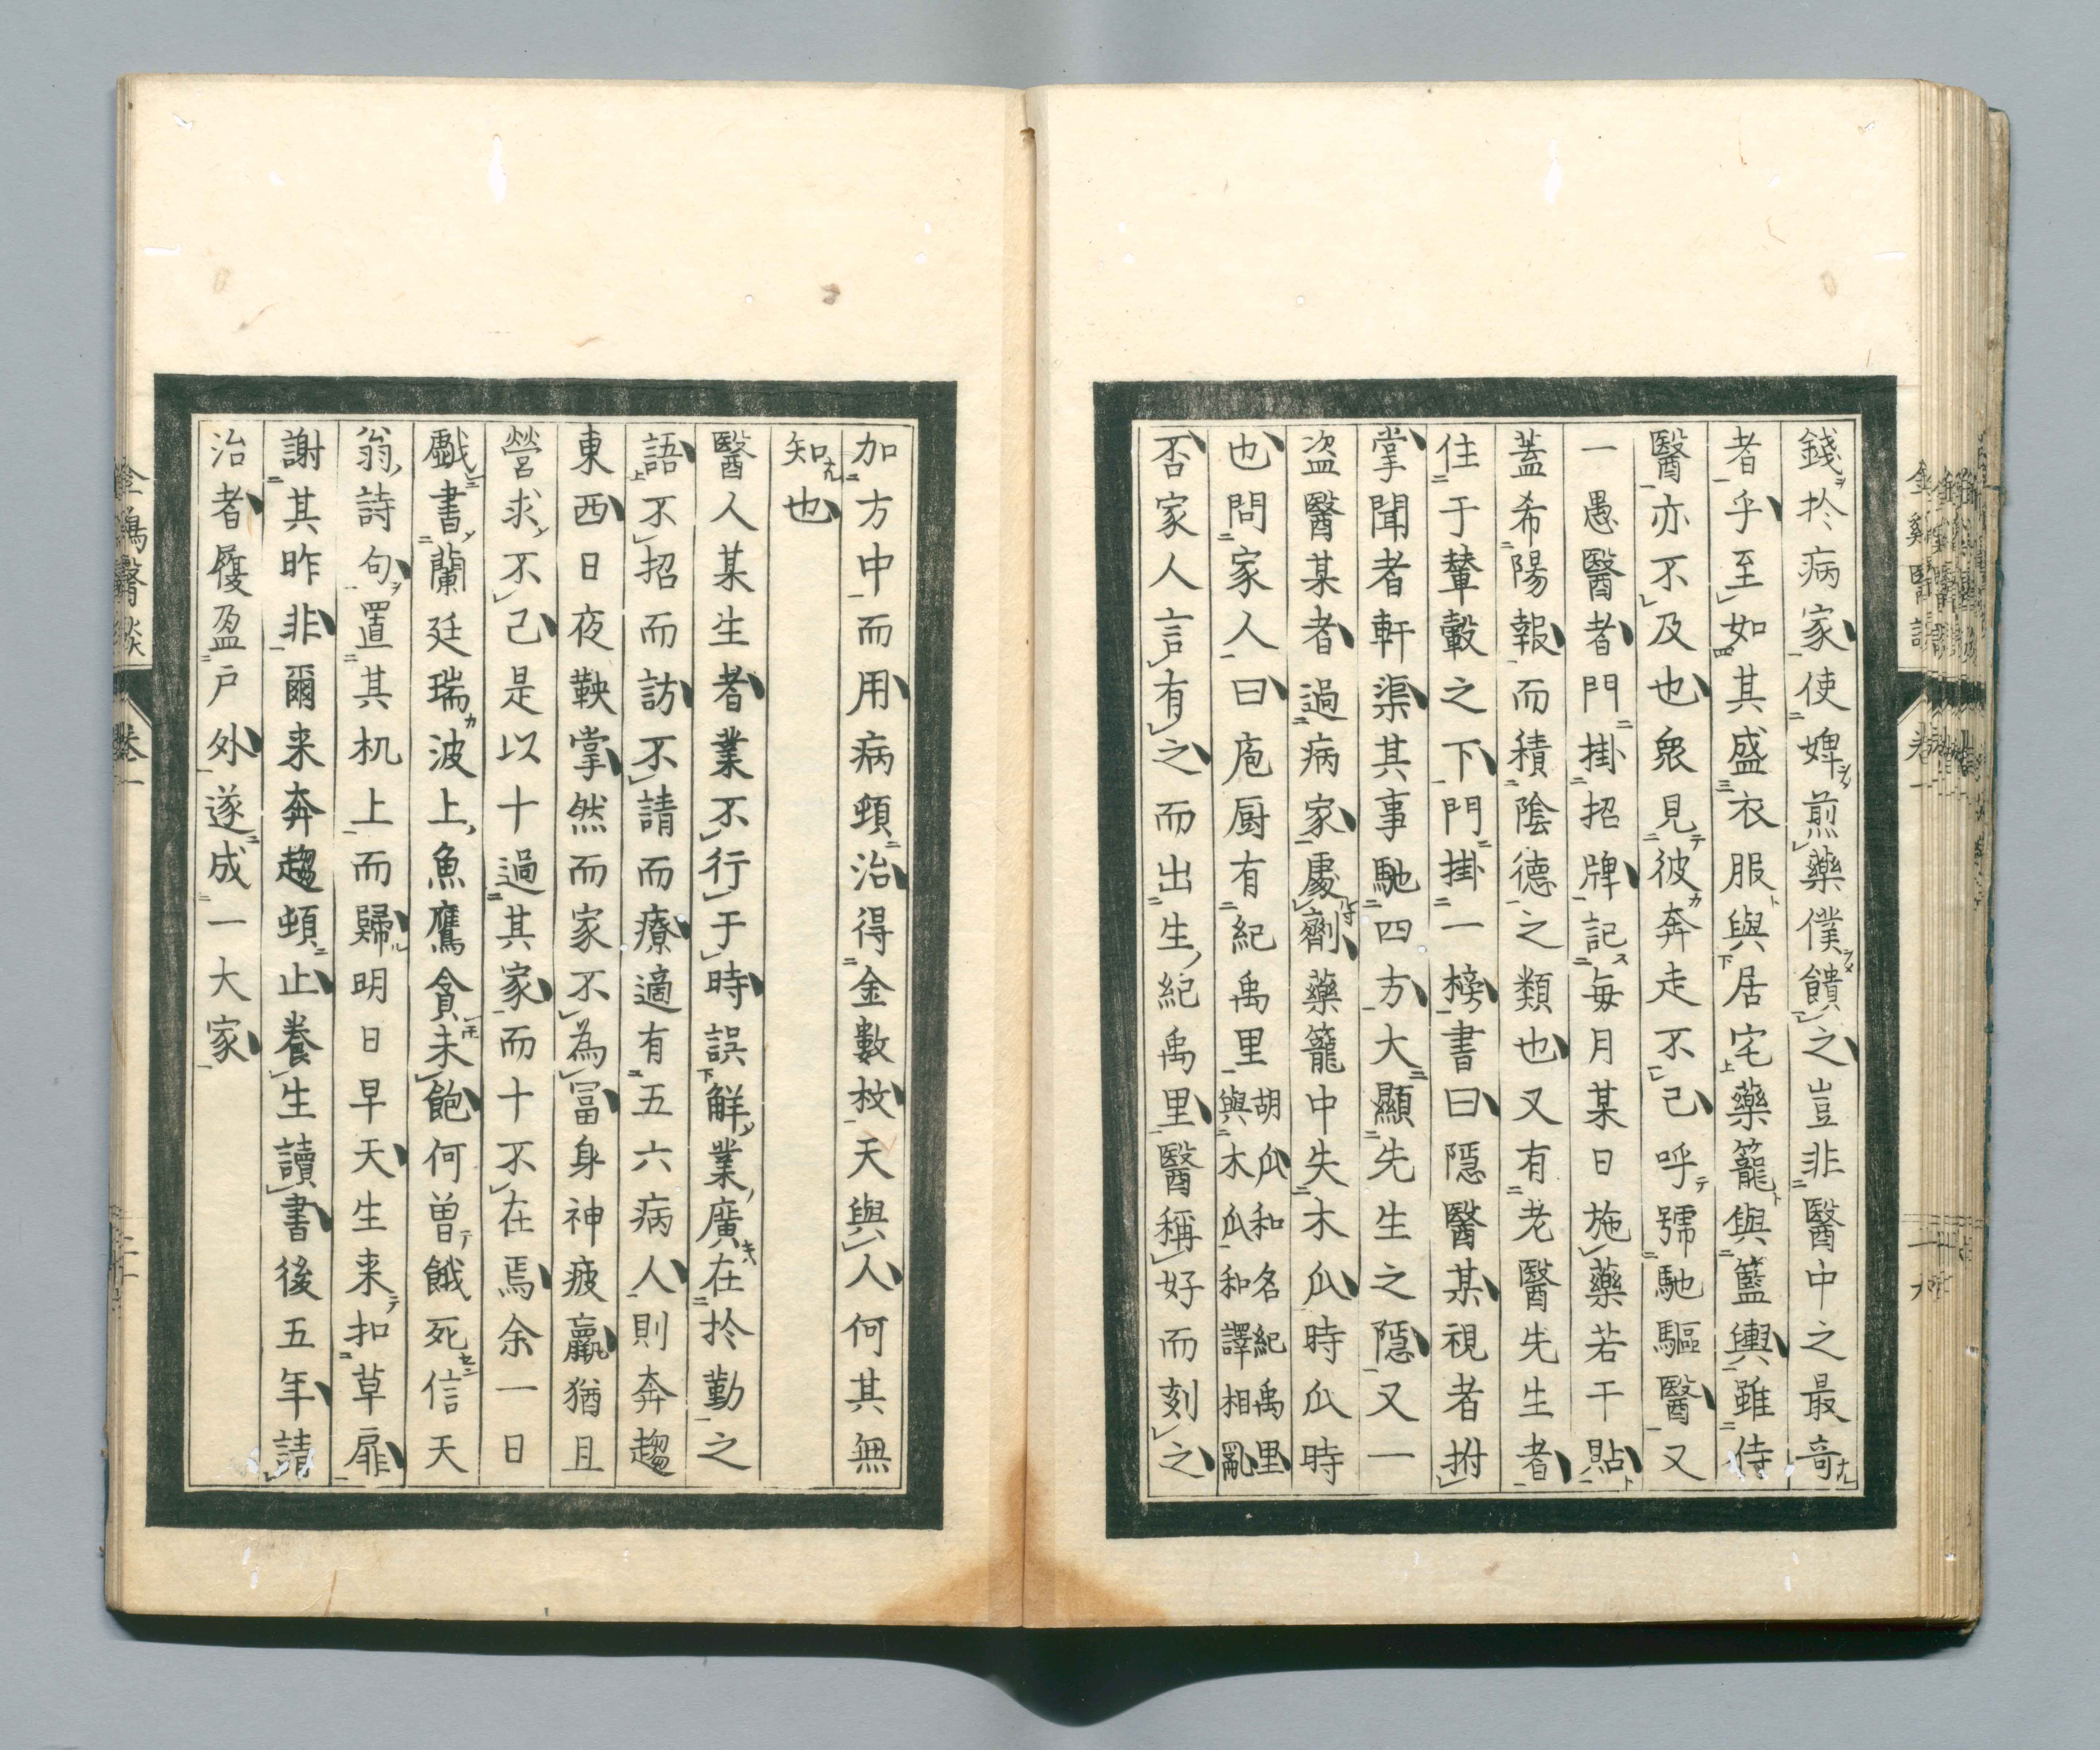 錢於病家使婢煎藥僕饋之豈非醫中之最奇
者乎至如其盛衣服與居宅藥籠與籃輿雖侍
醫亦不及也衆見彼奔走不已呼號馳驅醫又
一愚醫者門掛招牌記每月某日施藥若干貼
蓋希陽報而積陰德之類也又有老醫先生者
住于輦轂之下門掛一榜書曰隱醫某視者拊
掌聞者軒渠其事馳四方大顯先生之隱又一
盗醫某者過病家處劑藥籠中失木瓜時瓜時
也問家人曰庖厨有紀禹里胡瓜和名紀禹里
與木瓜和譯相亂
否家人言有之而出生紀禹里醫稱好而刻之
加方中而用病頓治得金數枚天與人何其無
知也
醫人某生者業不行于時誤解業廣在於勤之
語不招而訪不請而療適有五六病人則奔趨
東西日夜鞅掌然而家不為冨身神疲羸猶且
營求不已是以十過其家而十不在焉余一日
戲書蘭廷瑞波上魚鷹貪未飽何曽餓死信天
翁詩句置其机上而歸明日早天生来扣草扉
謝其昨非爾来奔趨頓止養生讀書後五年請
治者履盈戸外遂成一大家